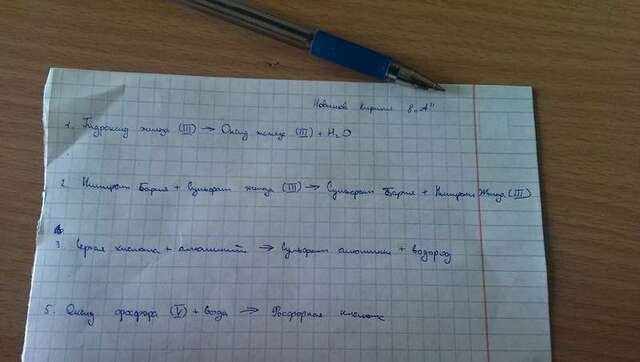 Новиков Кирилл 8 "А"
1. Гидроксид железа (III) → Оксид железа (III) + H₂O
2. Нитрат Бария + Сульфат железа (III) → Сульфат Бария + Нитрат Железа (III)
3. Серная кислота + алюминий → Сульфат алюминия + водород
5. Оксид фосфора (V) + вода → Фосфорная кислота